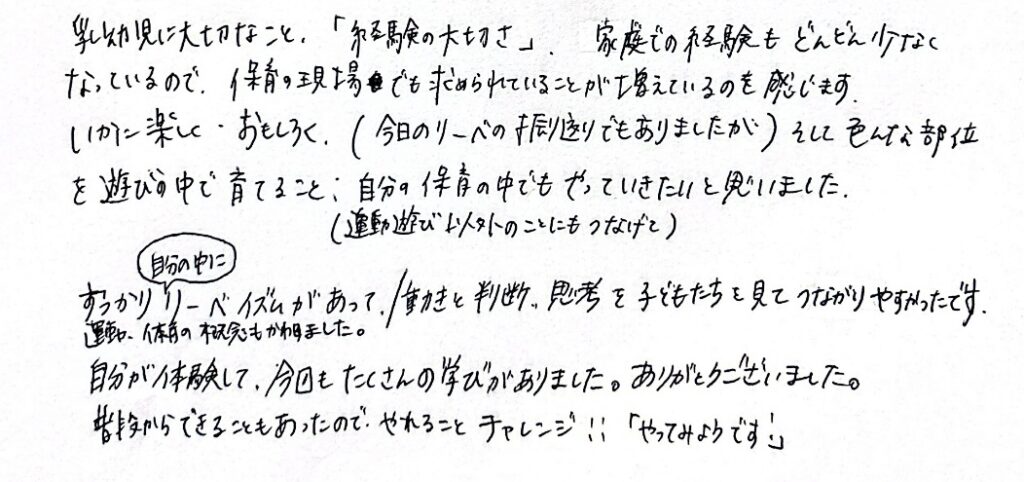 乳幼児に大切なこと、「経験の大切さ」、家庭での経験もどんどん少なく
なっているので、保育の現場でも求められていることが増えているのを感じます。
いかに楽しく・おもしろく、(今日のリーベの振返りでもありましたが)そして色んな部位
を遊びの中で育てること、自分の保育の中でもやっていきたいと思いました。
(運動遊び以外のことにもつなげて)
自分の中に
すっかりリーベイズムがあって、動きと判断、思考を子どもたちを見てつながりやすかったです。
運動、体育の概念もかわりました。
自分が体験して、今回もたくさんの学びがありました。ありがとうございました。
普段からできることもあったので、やれることチャレンジ!!「やってみようです!」